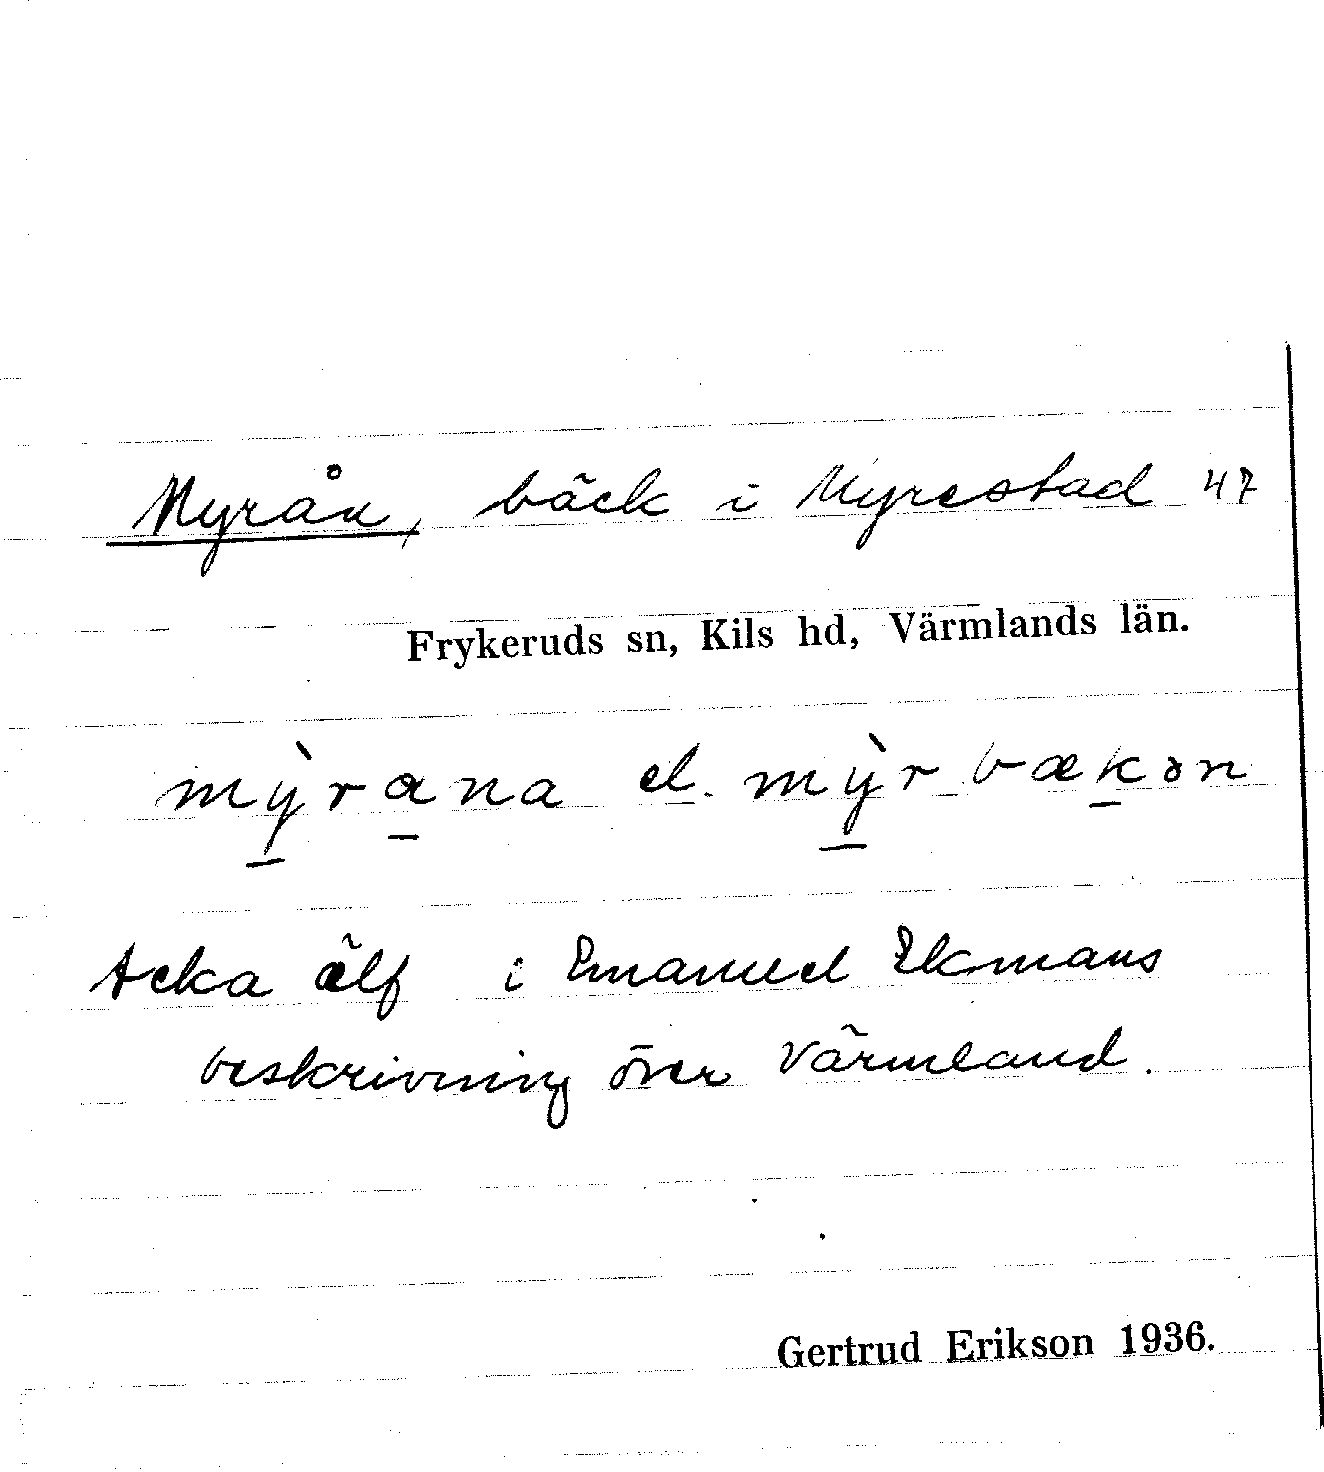 Myrån, bäck i Myrestad 47
Frykeruds sn, Kils hd, Värmlands län.
mỳ̱ra̱na el. mỳ̱rbæḵən
Acka älf i Emanuel Ekmans
beskrivning över Värmland.
Gertrud Erikson 1936.